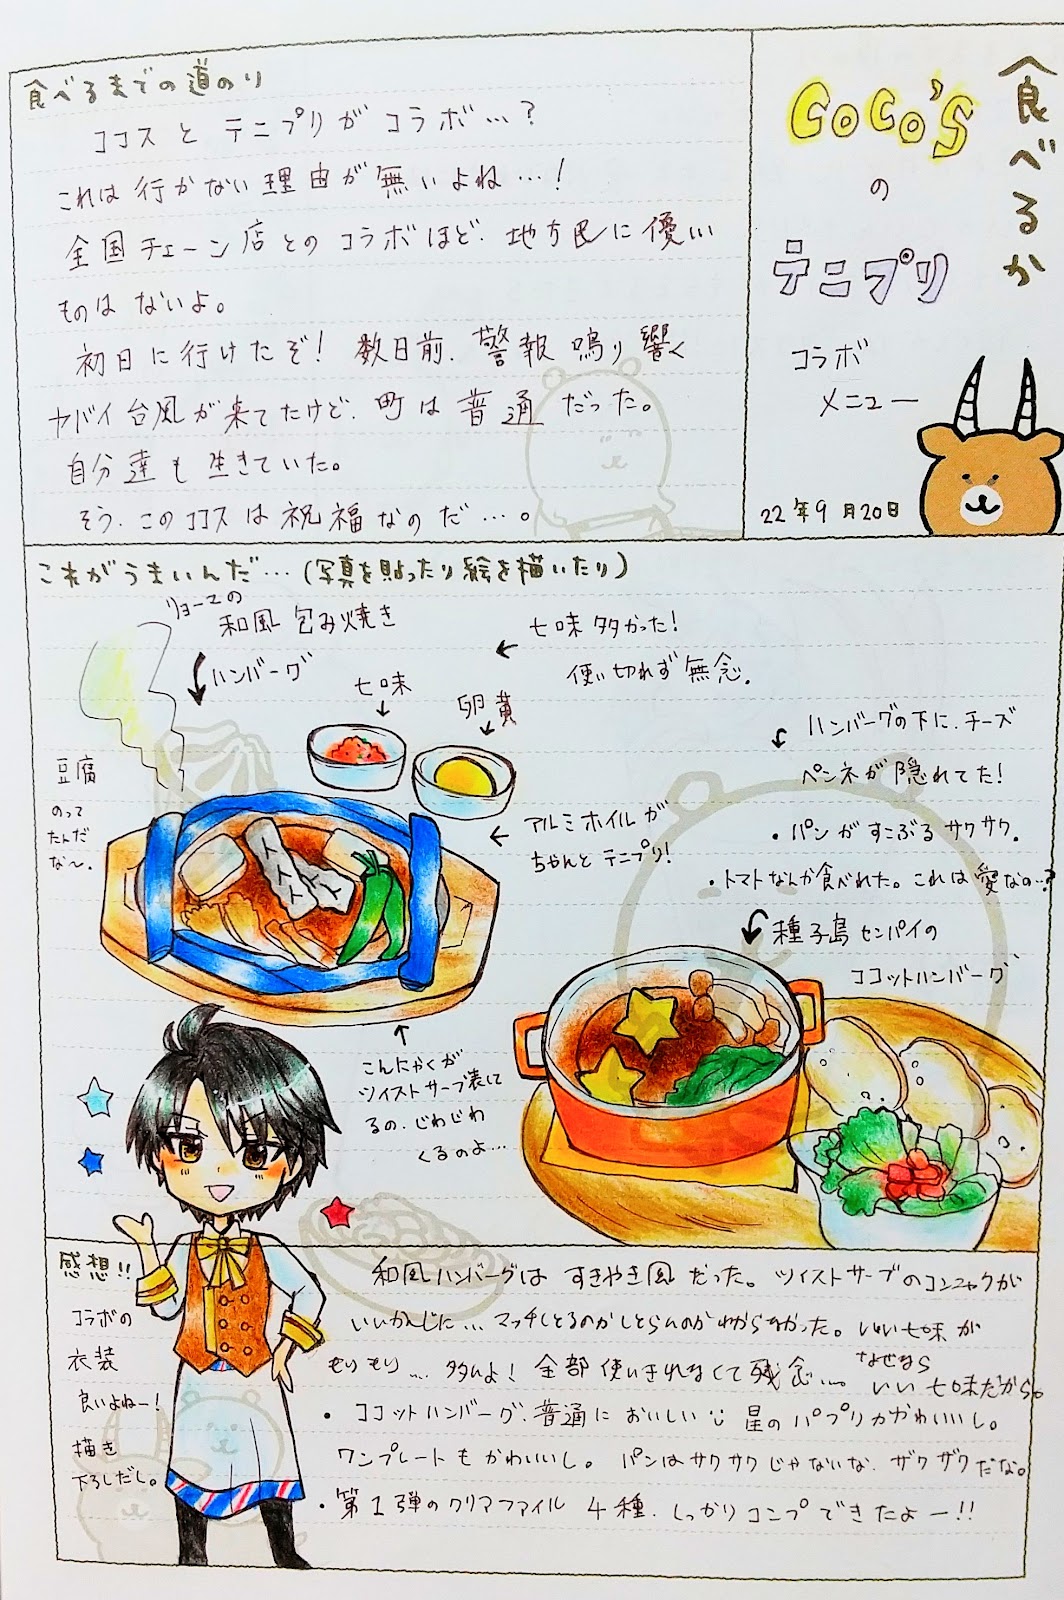 食べるか
COCO'S
の
テニプリ
コラボ
メニュー
22年9月20日
食べるまでの道のり
ココスとテニプリがコラボ…?
これは行かない理由が無いよね…!
全国チェーン店とのコラボほど、地方民に優しい
ものはないよ。
初日に行けたぞ! 数日前、警報鳴り響く
ヤバイ台風が来てたけど、町は普通だった。
自分達も生きていた。
そう、このココスは祝福なのだ…。
これがうまいんだ…(写真を貼ったり絵を描いたり)
リョーマの
和風包み焼き
ハンバーグ
七味
卵黄
七味多かった!
使い切れず無念。
豆腐
のって
たんだ
な〜。
アルミホイルが
ちゃんとテニプリ!
こんにゃくが
ツイストサーブ表して
るの、じわじわ
くるのよ…
ハンバーグの下に、チーズ
ペンネが隠れてた!
・パンがすこぶるサクサク。
・トマトなんか食べれた。これは愛なの…?
種子島センパイの
ココットハンバーグ
感想!!
コラボの
衣装
良いよねー!
描き
下ろしだし。
和風ハンバーグはすきやき風だった。ツイストサーブのコンニャクが
いいかんじに…マッチしとるのかしとらんのかわからなかった。いい七味が
もりもり…多いよ! 全部使いきれなくて残念…。
なぜなら
いい七味だから。
・ココットハンバーグ、普通においしい 星のパプリカかわいいし。
ワンプレートもかわいいし。パンはサクサクじゃないな、ザクザクだな。
・第1弾のクリアファイル4種、しっかりコンプできたよー!!